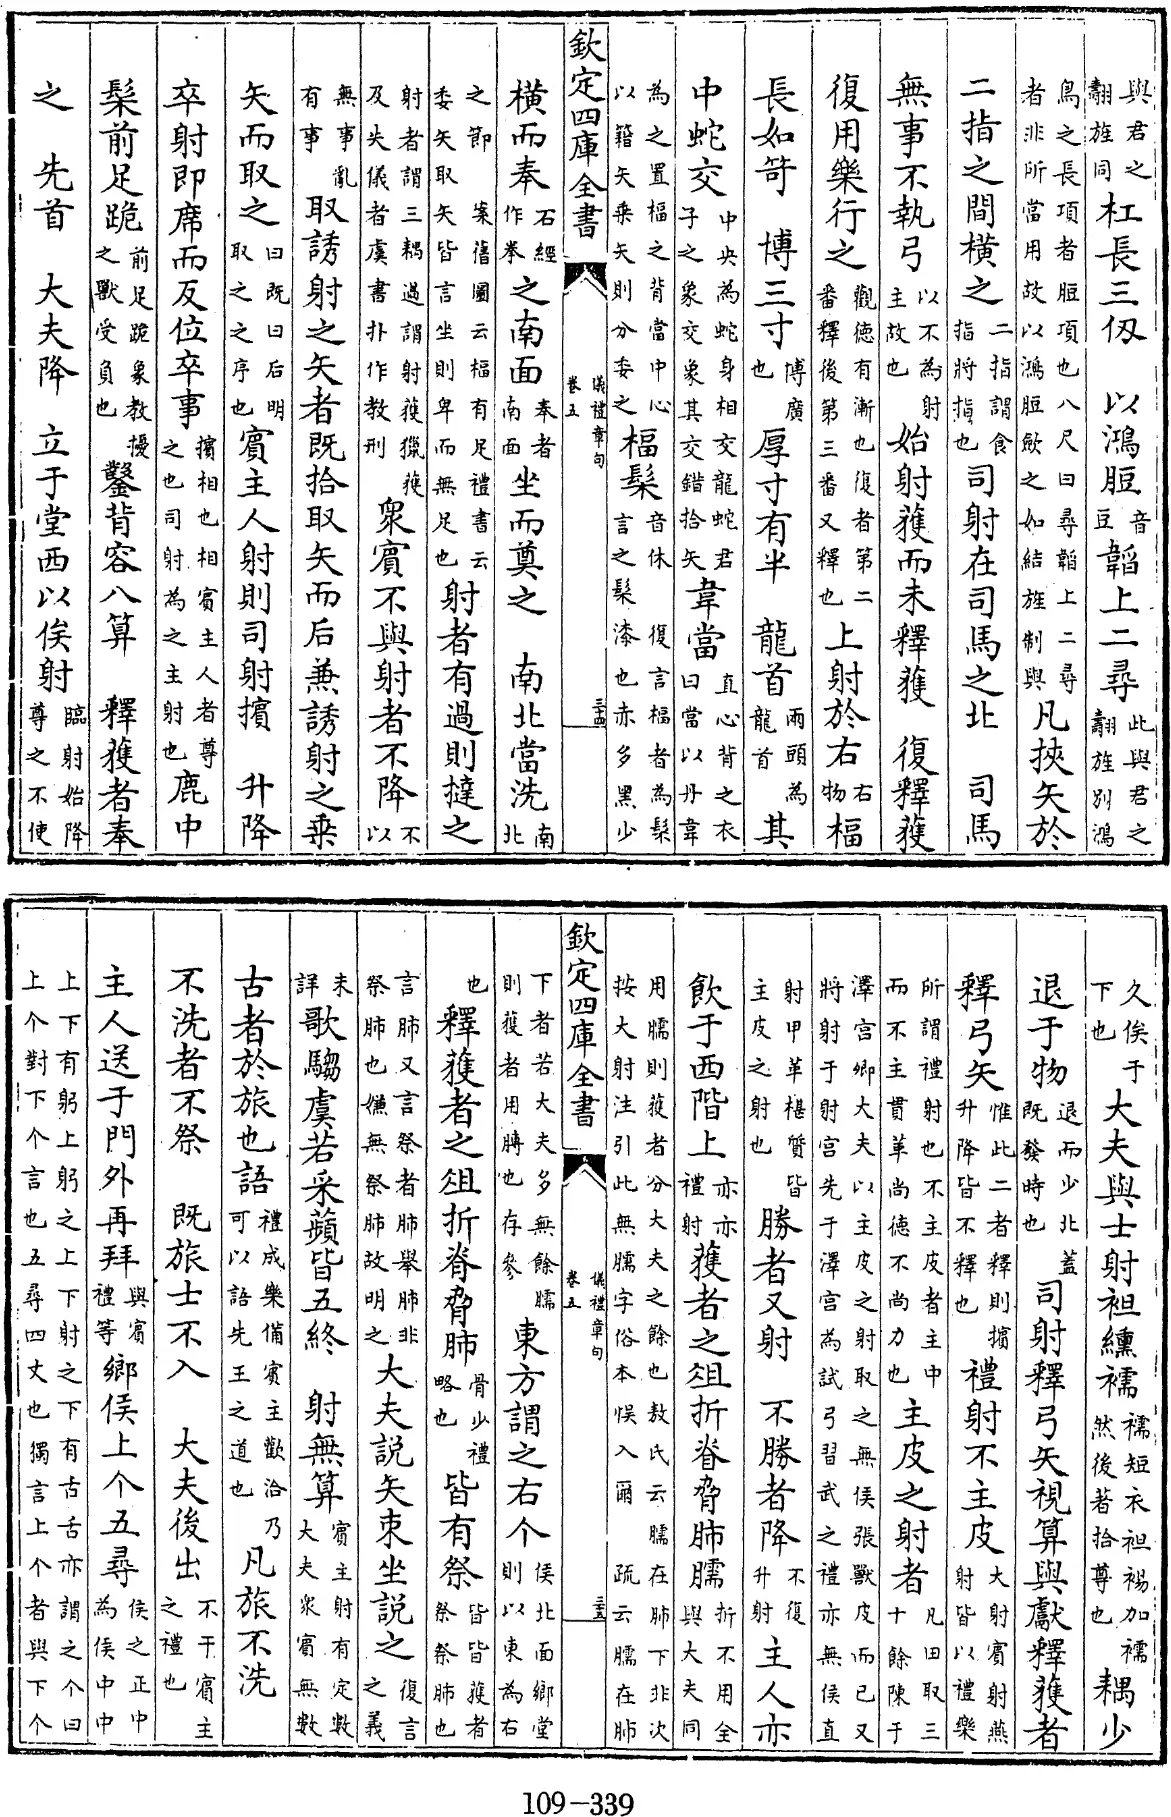 與君之翿旌同杠長三仞 以鴻脰音豆韜上二尋此與君之翿旌別鴻
鳥之長項者脰項也八尺曰尋韜上二尋者非所當用故以鴻脰歛之如結旌制與凡挾矢於
二指之間橫之二指謂食指將指也司射在司馬之北 司馬
無事不執弓以不為射主故也始射獲而未釋獲 復釋獲
復用樂行之觀德有漸也復者第二番釋後第三番又釋也上射於右右物楅
長如笴 博三寸博廣也厚寸有半 龍首兩頭為龍首其
中蛇交中央為蛇身相交龍蛇君子之象交象其交錯拾矢韋當直心背之衣曰當以丹韋
為之置楅之背當中心以籍矢乗矢則分委之楅髤音休 復言楅者為髤言之髤漆也赤多黑少
欽定四庫全書 儀禮章句 卷五 三十四
橫而奉石經作拳之南面奉者南面坐而奠之 南北當洗南北
之節 案舊圖云楅有足禮書云委矢取矢皆言坐則卑而無足也射者有過則撻之
射者謂三耦過謂射獲獵獲及失儀者虞書扑作教刑衆賓不與射者不降不以
無事亂有事取誘射之矢者既拾取矢而后兼誘射之乗
矢而取之曰既曰后明取之之序也賓主人射則司射擯 升降
卒射即席而反位卒事擯相也相賓主人者尊之也司射為之主射也鹿中
髤前足跪前足跪象教擾之獸受負也鑿背容八算 釋獲者奉
之 先首 大夫降 立于堂西以俟射臨射始降尊之不使
久俟于下也大夫與士射袒纁襦襦短衣袒裼加襦然後著拾尊也耦少
退于物退而少北蓋既發時也司射釋弓矢視算與獻釋獲者
釋弓矢惟此二者釋則擯升降皆不釋也禮射不主皮大射賓射燕射皆以禮樂
所謂禮射也不主皮者主中而不主貫革尚德不尚力也主皮之射者凡田取三十餘陳于
澤宮卿大夫以主皮之射取之無侯張獸皮而已又將射于射宮先于澤宮為試弓習武之禮亦無侯直
射甲革椹質皆主皮之射也勝者又射 不勝者降不復升射主人亦
飲于西階上亦亦禮射獲者之俎折脊脅肺臑折不用全與大夫同
用臑則獲者分大夫之餘也敖氏云臑在肺下非次按大射注引此無臑字俗本悞入爾 疏云臑在肺
欽定四庫全書 儀禮章句 卷五 三十五
下者若大夫多無餘臑則獲者用膞也存參東方謂之右个侯北面鄉堂則以東為右
也釋獲者之俎折脊脅肺骨少禮略也皆有祭皆皆獲者祭祭肺也
言肺又言祭者肺舉肺非祭肺也嫌無祭肺故明之大夫說矢束坐說之復言之義
未詳歌騶虞若采蘋皆五終 射無算賓主射有定數大夫衆賓無數
古者於旅也語禮成樂備賓主歡洽乃可以語先王之道也凡旅不洗
不洗者不祭 既旅士不入 大夫後出不干賓主之禮也
主人送于門外再拜與賓禮等鄉侯上个五尋侯之正中為侯中中
上下有躬上躬之上下射之下有舌舌亦謂之个曰上个對下个言也五尋四丈也獨言上个者與下个
109-339